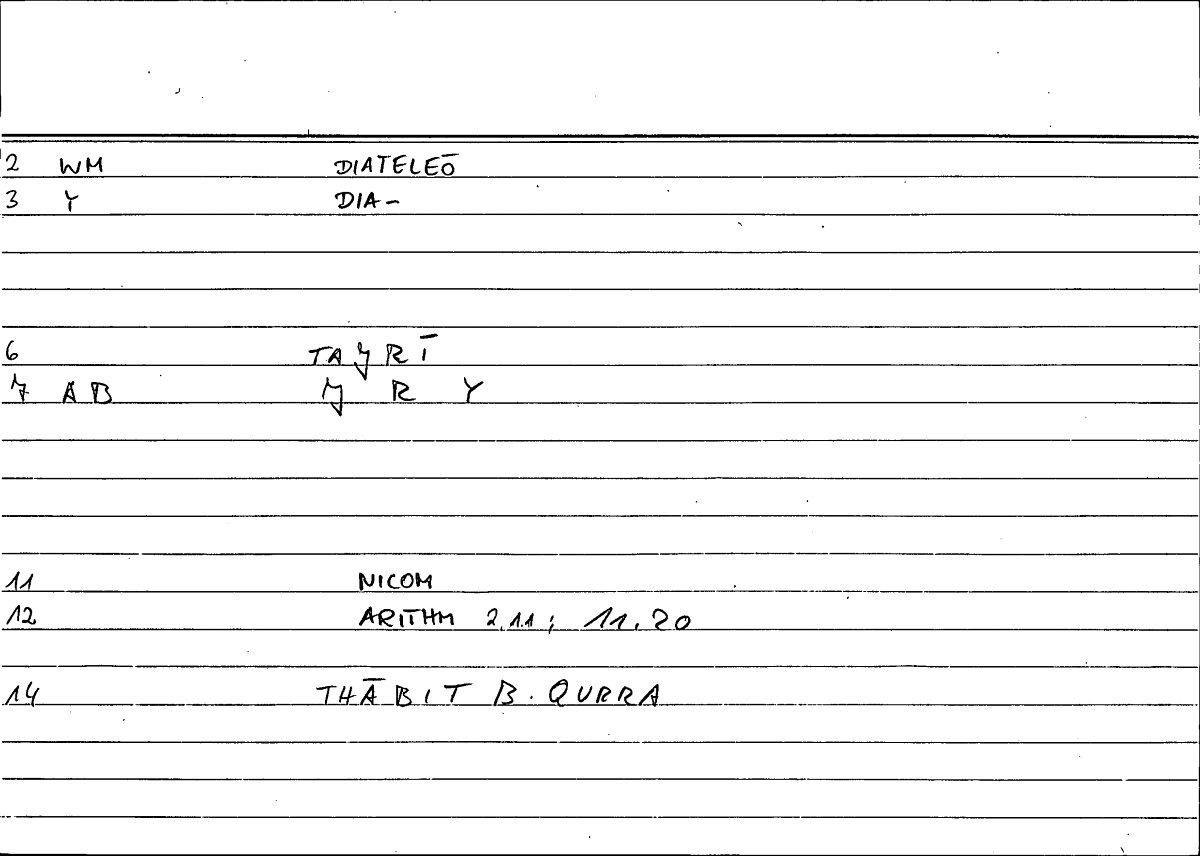 2 WM DIATELEŌ
3 Y DIA-
6 TAJ̌RĪ
7 AB J̌ R Y
11 NICOM
12 ARITHM 2,11; 11.20
14 THĀBIT B. QURRA